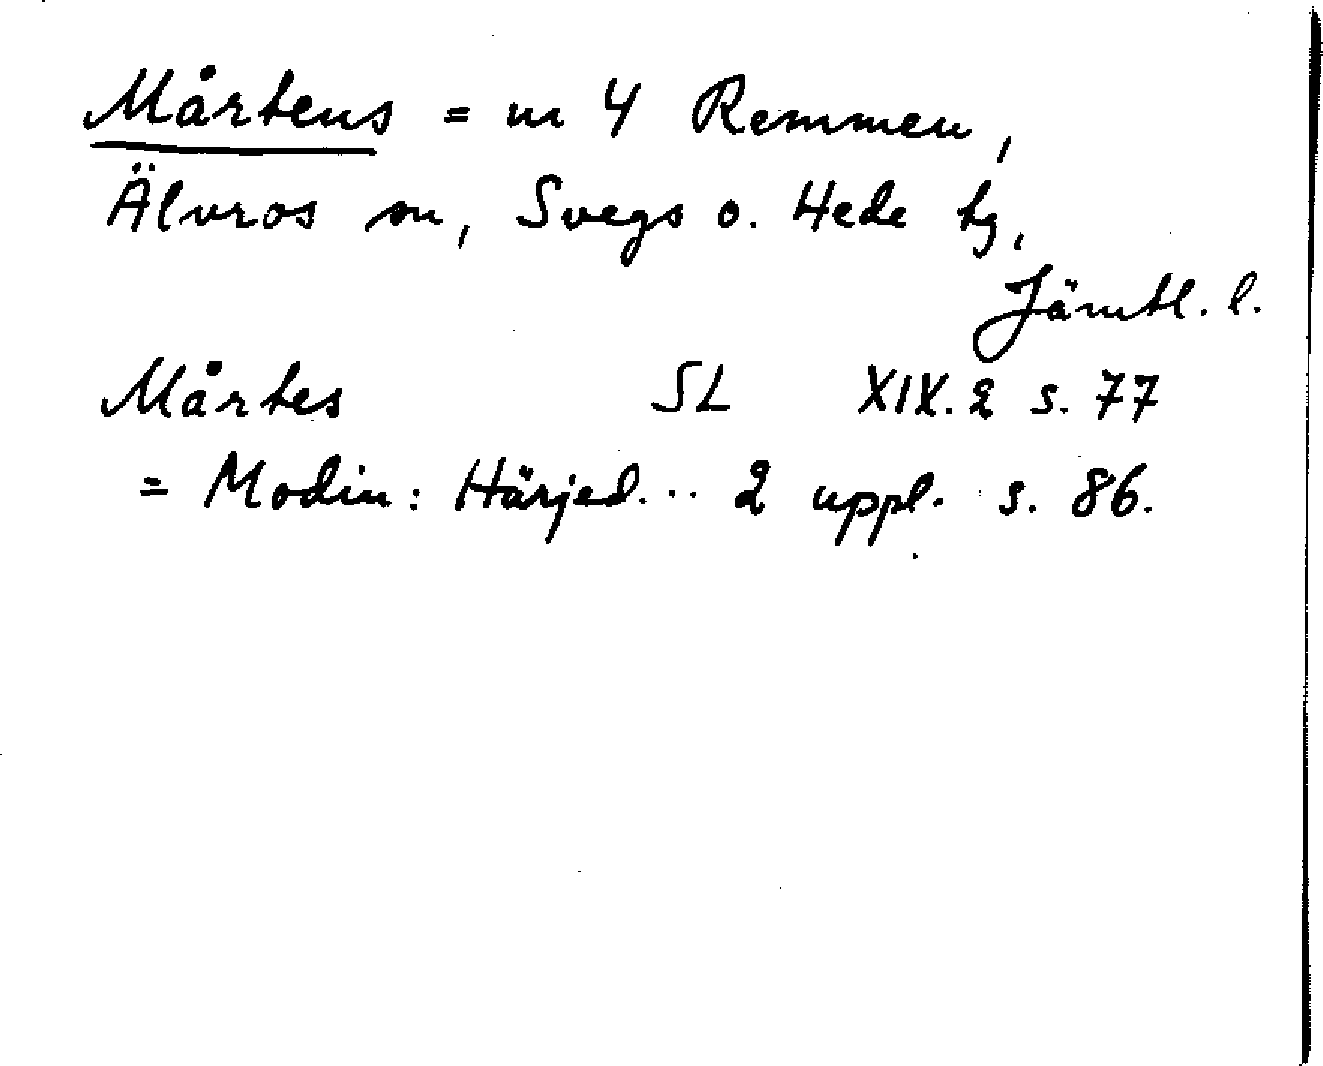 Mårtens = nr 4 Remmen,
Älvros sn, Svegs o. Hede tg,
Jämtl. l.
Mårtes SL XIX. 2 s. 77
= Modin: Härjed... 2 uppl. s. 86.